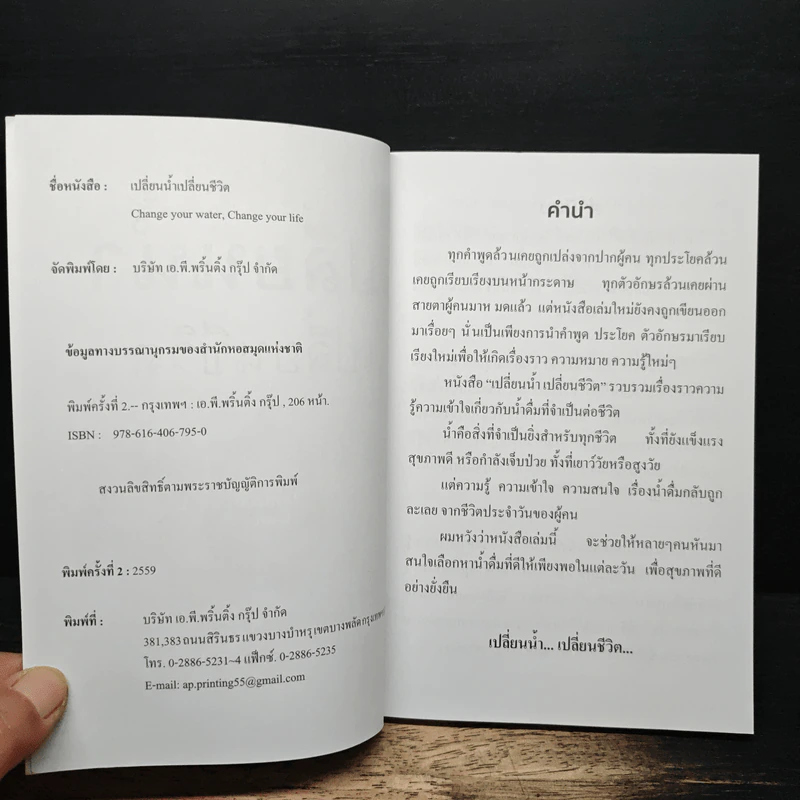 ชื่อหนังสือ : เปลี่ยนน้ำเปลี่ยนชีวิต
Change your water, Change your life
จัดพิมพ์โดย : บริษัท เอ.พี.พริ้นติ้ง กรุ๊ป จำกัด
ข้อมูลทางบรรณานุกรมของสำนักหอสมุดแห่งชาติ
พิมพ์ครั้งที่ 2.-- กรุงเทพฯ : เอ.พี.พริ้นติ้ง กรุ๊ป , 206 หน้า.
ISBN : 978-616-406-795-0
สงวนลิขสิทธิ์ตามพระราชบัญญัติการพิมพ์
พิมพ์ครั้งที่ 2 : 2559
พิมพ์ที่ : บริษัท เอ.พี.พริ้นติ้ง กรุ๊ป จำกัด
381,383 ถนนสิรินธร แขวงบางบำหรุ เขตบางพลัด กรุงเทพฯ
โทร. 0-2886-5231-4 แฟ็กซ์. 0-2886-5235
E-mail: ap.printing55@gmail.com
คำนำ
ทุกคำพูดล้วนเคยถูกเปล่งจากปากผู้คน ทุกประโยคล้วน
เคยถูกเรียบเรียงบนหน้ากระดาษ ทุกตัวอักษรล้วนเคยผ่าน
สายตาผู้คนมาห มดแล้ว แต่หนังสือเล่มใหม่ยังคงถูกเขียนออก
มาเรื่อยๆ นั่นเป็นเพียงการนำคำพูด ประโยค ตัวอักษรมาเรียบ
เรียงใหม่เพื่อให้เกิดเรื่องราว ความหมาย ความรู้ใหม่ๆ
หนังสือ “เปลี่ยนน้ำ เปลี่ยนชีวิต” รวบรวมเรื่องราวความ
รู้ความเข้าใจเกี่ยวกับน้ำดื่มที่จำเป็นต่อชีวิต
น้ำคือสิ่งที่จำเป็นยิ่งสำหรับทุกชีวิต ทั้งที่ยังแข็งแรง
สุขภาพดี หรือกำลังเจ็บป่วย ทั้งที่เยาว์วัยหรือสูงวัย
แต่ความรู้ ความเข้าใจ ความสนใจ เรื่องน้ำดื่มกลับถูก
ละเลย จากชีวิตประจำวันของผู้คน
ผมหวังว่าหนังสือเล่มนี้ จะช่วยให้หลายๆคนหันมา
สนใจเลือกหาน้ำดื่มที่ดีให้เพียงพอในแต่ละวัน เพื่อสุขภาพที่ดี
อย่างยั่งยืน
เปลี่ยนน้ำ... เปลี่ยนชีวิต...